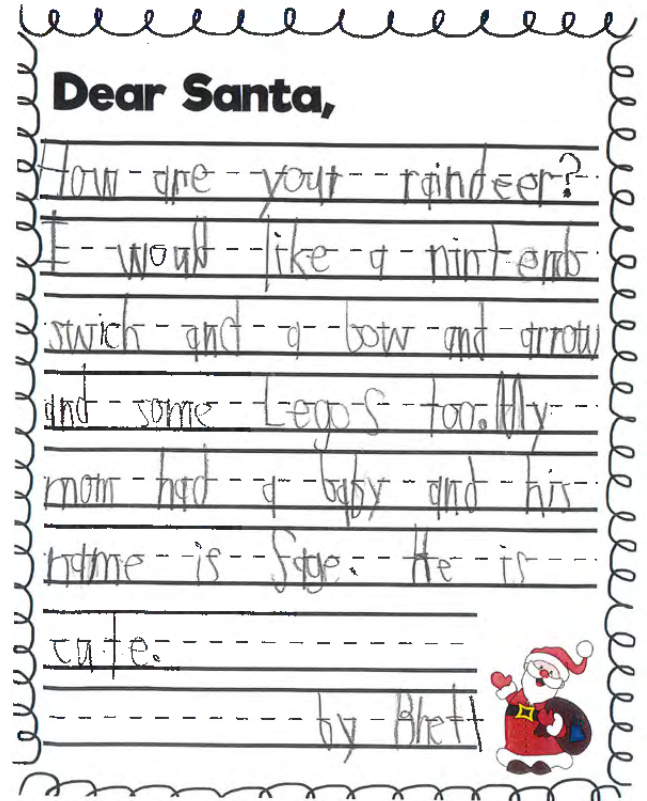 Dear Santa,
How are your raindeer?
I would like a nintendo
swich and a bow and arrow
and some Legos too. My
mom had a baby and his
name is Sage. He is
cute.
by Rhett